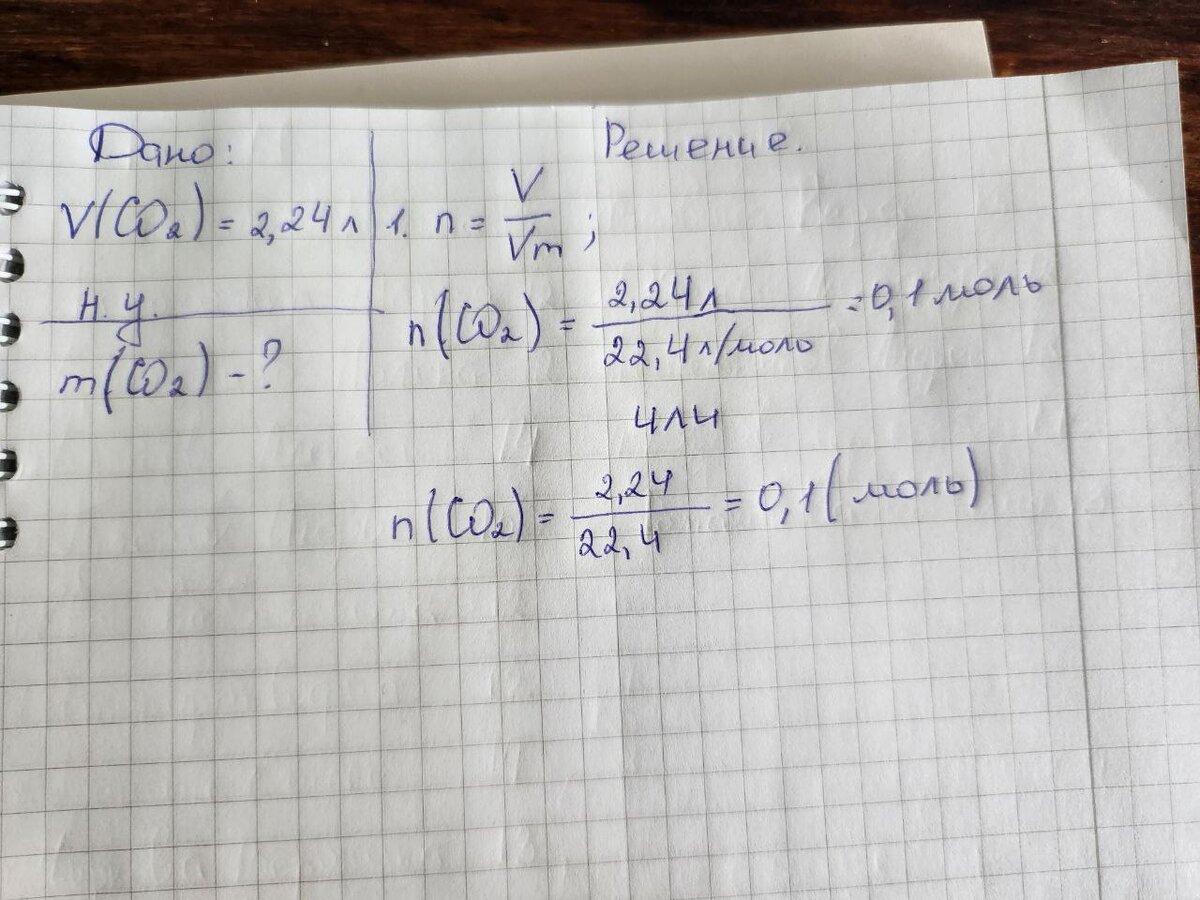 Дано:
V(CO₂) = 2,24 л
н.у.
m(CO₂) - ?
Решение.
1. n = V/Vm ;
n(CO₂) = 2,24 л / 22,4 л/моль = 0,1 моль
или
n(CO₂) = 2,24 / 22,4 = 0,1 (моль)